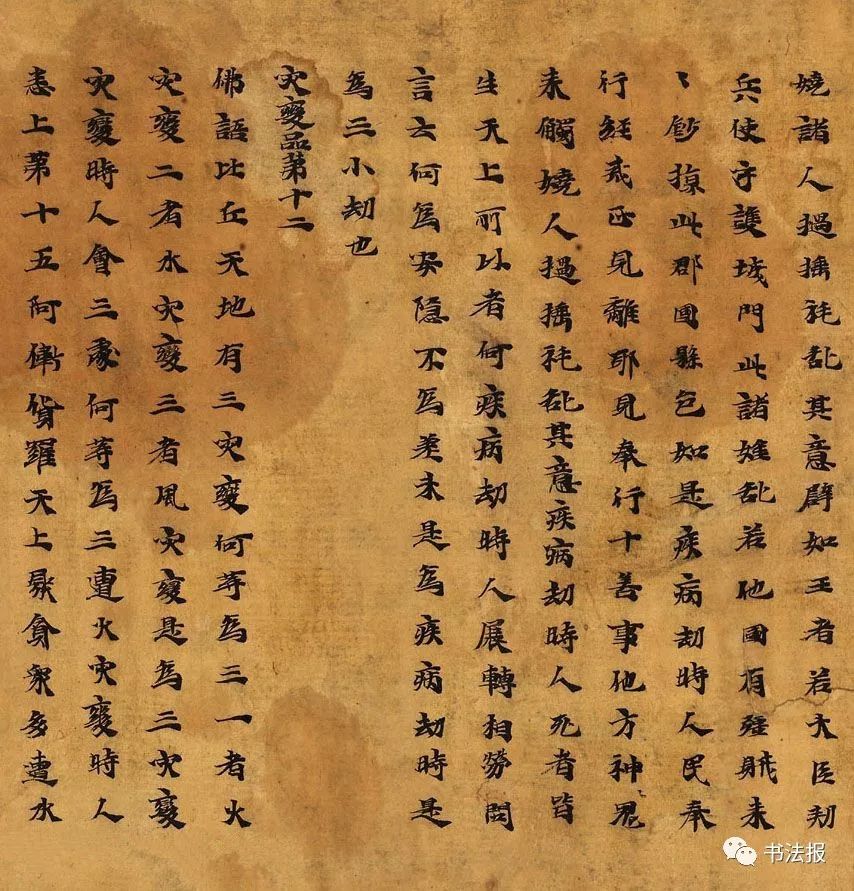 嬈諸人撾捶秏亂其意辟如王者若大臣勑
兵使守護城門此諸婬亂若他國有彊賊来
〻鈔掠此郡國縣邑如是疾病劫時人民奉
行經戒正見離邪見奉行十善事他方神鬼〻
来觸嬈人撾捶秏亂其意疾病劫時人死者皆
生天上所以者何疾病劫時人展轉相勞問
言云何為安隱不為差未是為疾病劫時是
為三小劫也
灾變品第十二
佛語比丘天地有三灾變何等為三一者火
灾變二者水灾變三者風灾變是為三灾變
灾變時人會三處何等為三遭火灾變時人
悉上第十五阿衛貨羅天上聚會衆多遭水
书法报